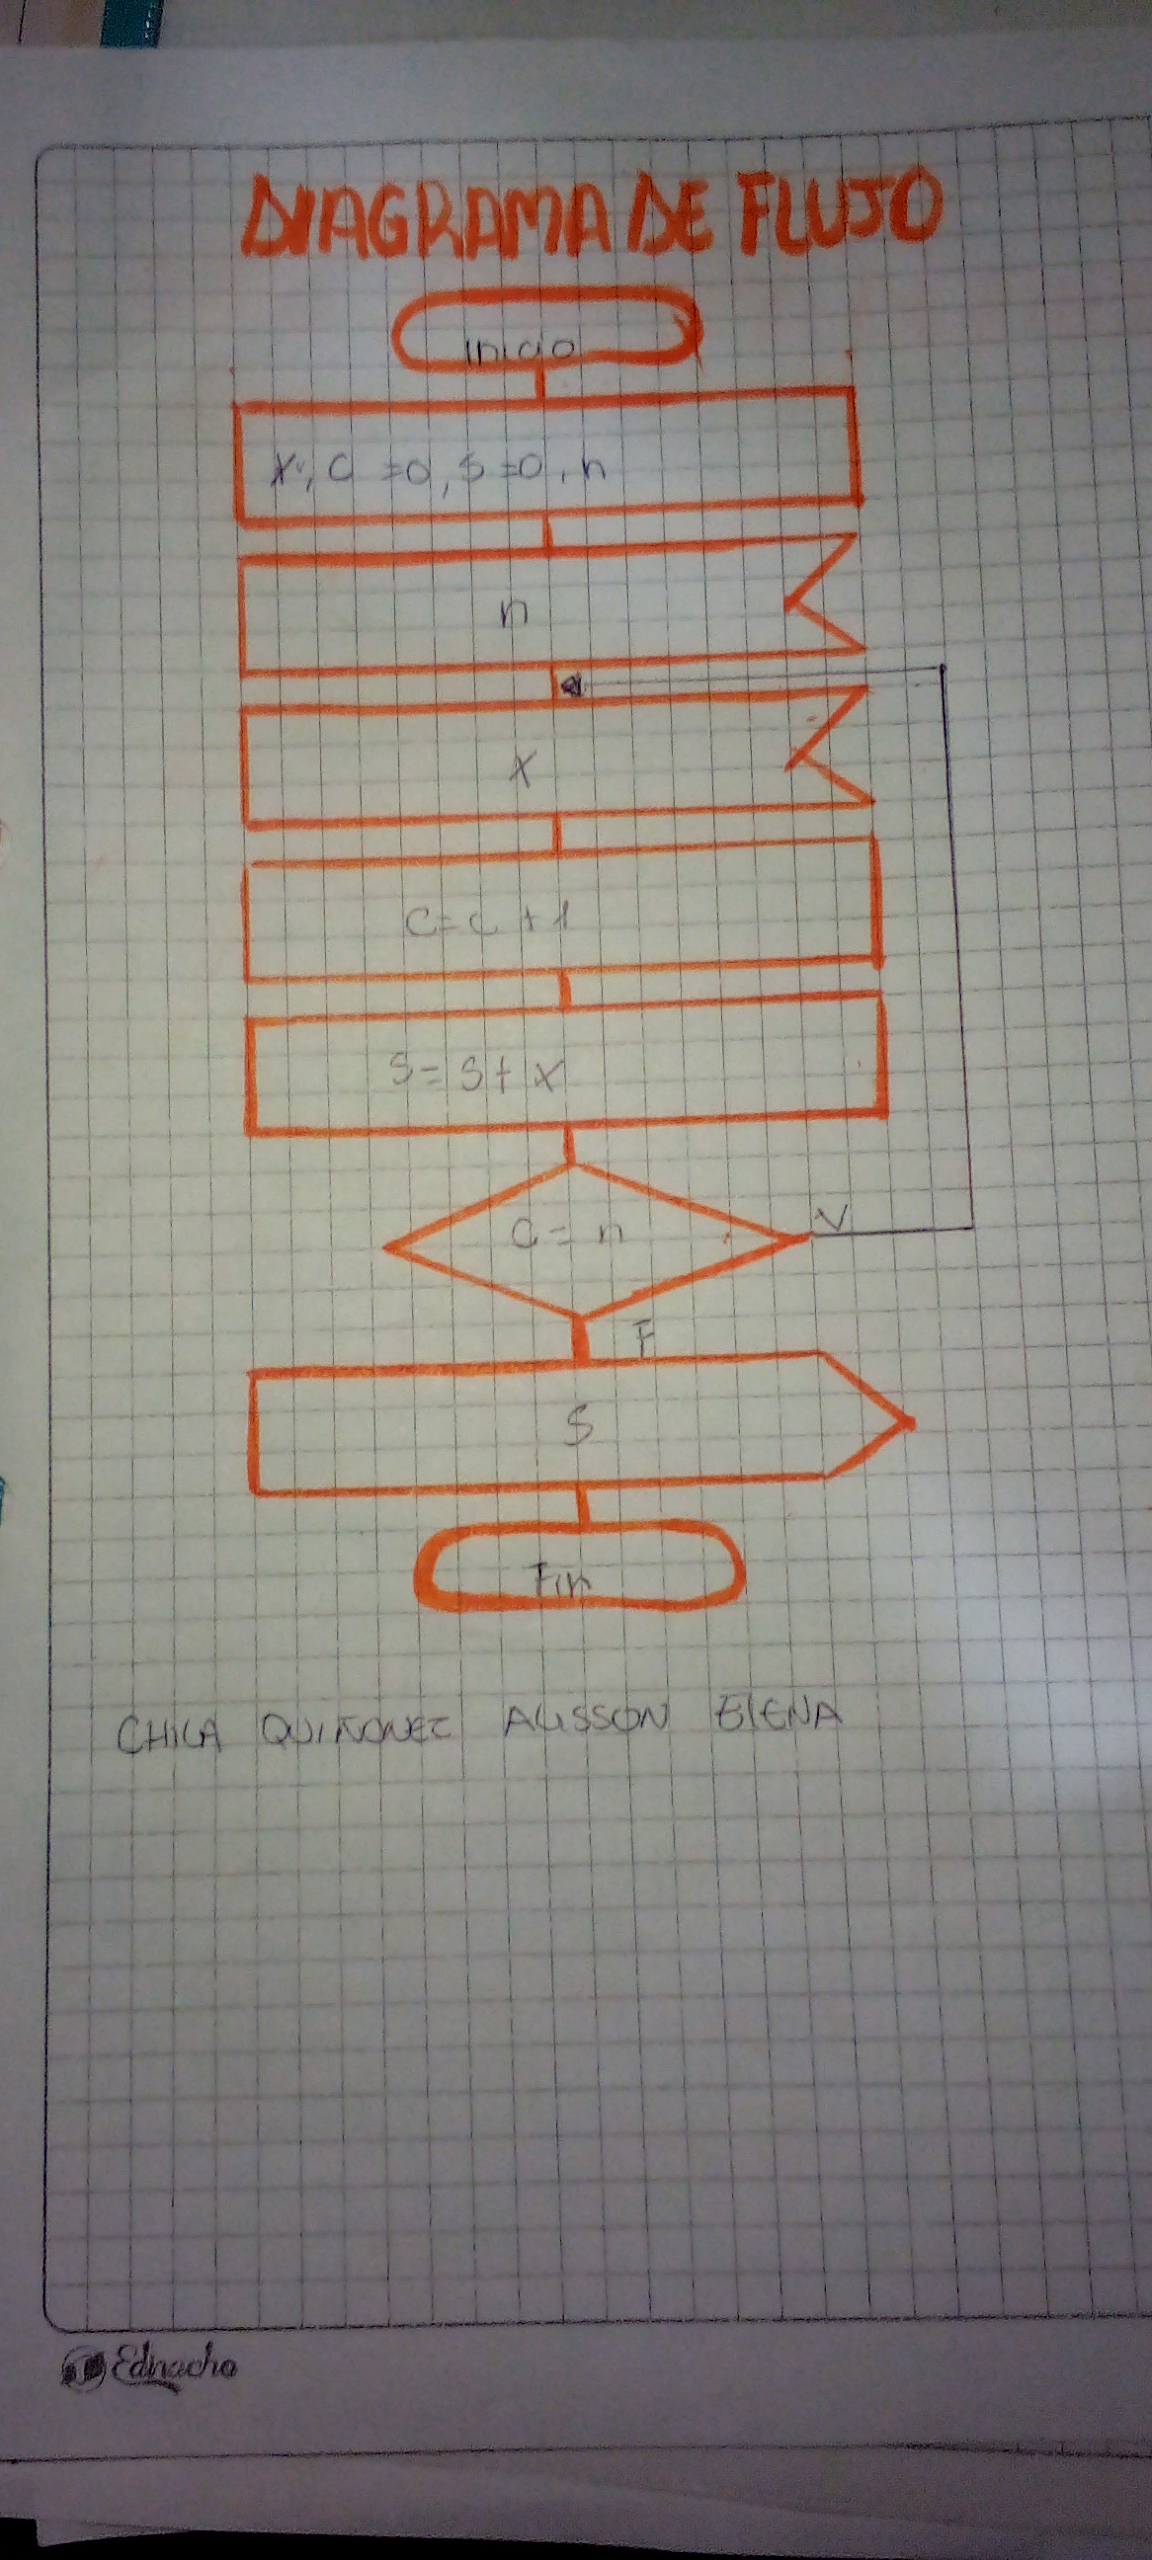 DIAGRAMA DE FLUJO
Inicio
X, C =0, S=0, n
n
X
C=C+1
S=S+X
C=n
V
F
S
Fin
CHILA QUIÑONEZ ALISSON ELENA
Ednacho